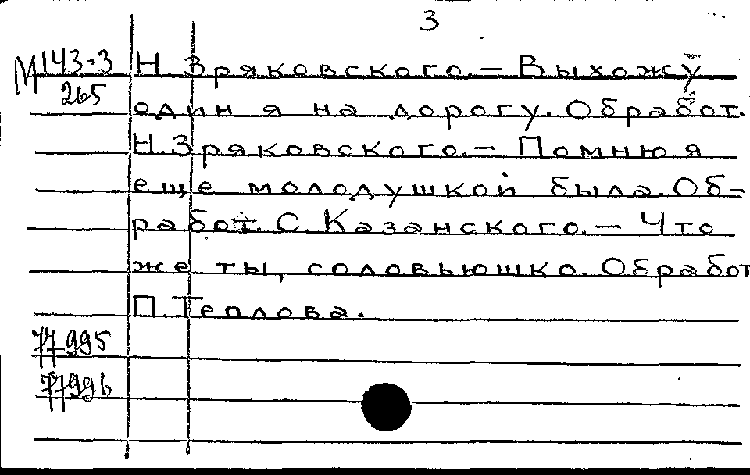 3
М 143-3 Н. Зряковского.— Выхожу
265
один я на дорогу. Обработ.
Н. Зряковского.— Помню я
еще молодушкой была. Об-
работ. С. Казанского.— Что
же ты, соловьюшко. Обработ
П. Теплова.
77995
77996